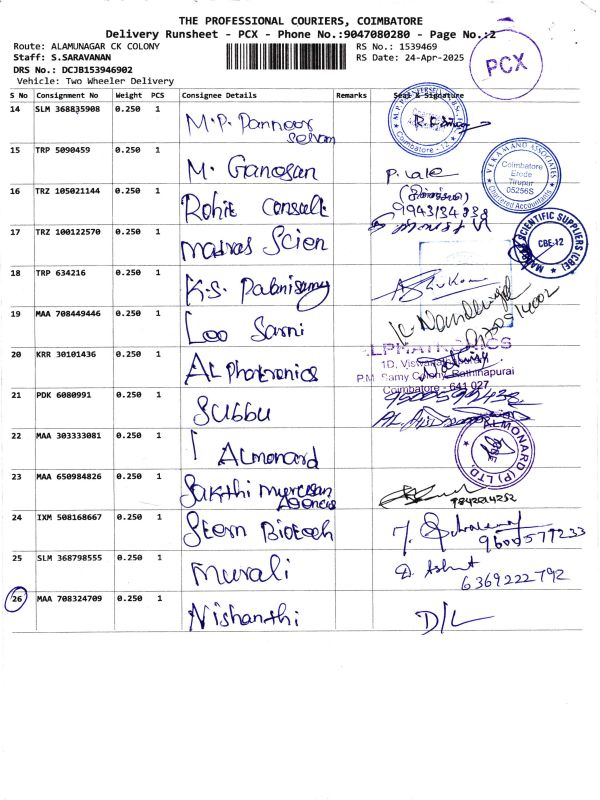 THE PROFESSIONAL COURIERS, COIMBATORE
Delivery Runsheet - PCX - Phone No.:9047080280 - Page No.:2
Route: ALAMUNAGAR CK COLONY
RS No.: 1539469
Staff: S.SARAVANAN
RS Date: 24-Apr-2025
DRS No.: DCJB153946902
Vehicle: Two Wheeler Delivery
PCX
S No Consignment No Weight PCS Consignee Details Remarks Seal & Signature
14 SLM 368835908 0.250 1 M.P. Panneer Selvam
Coimbatore - 12
15 TRP 5090459 0.250 1 M. Ganesan P. Lale
VEKAM AND ASSOCIATES
Coimbatore
Erode
Tirupur
05256S
Chartered Accountants
16 TRZ 105021144 0.250 1 Rohit Consult
9943134838
17 TRZ 100122570 0.250 1 Madras Scien
SCIENTIFIC SUPPLIERS (CBE)
CBE-12
18 TRP 634216 0.250 1 K.S. Palanisamy
19 MAA 708449446 0.250 1 Loo Sarni
20 KRR 30101436 0.250 1 AL Photronics
1D,
P.M. Samy Colony, Rathinapurai
Coimbatore - 641 027
21 PDK 6080991 0.250 1 Subbu
22 MAA 303333081 0.250 1 Almonard
ALMONARD (P) LTD.
23 MAA 650984826 0.250 1 Sakthi Murugan Agencies
9842214252
24 IXM 508168667 0.250 1 Stern Biotech
9600577233
25 SLM 368798555 0.250 1 Murali
6369222792
26 MAA 708324709 0.250 1 Nishanthi D/L